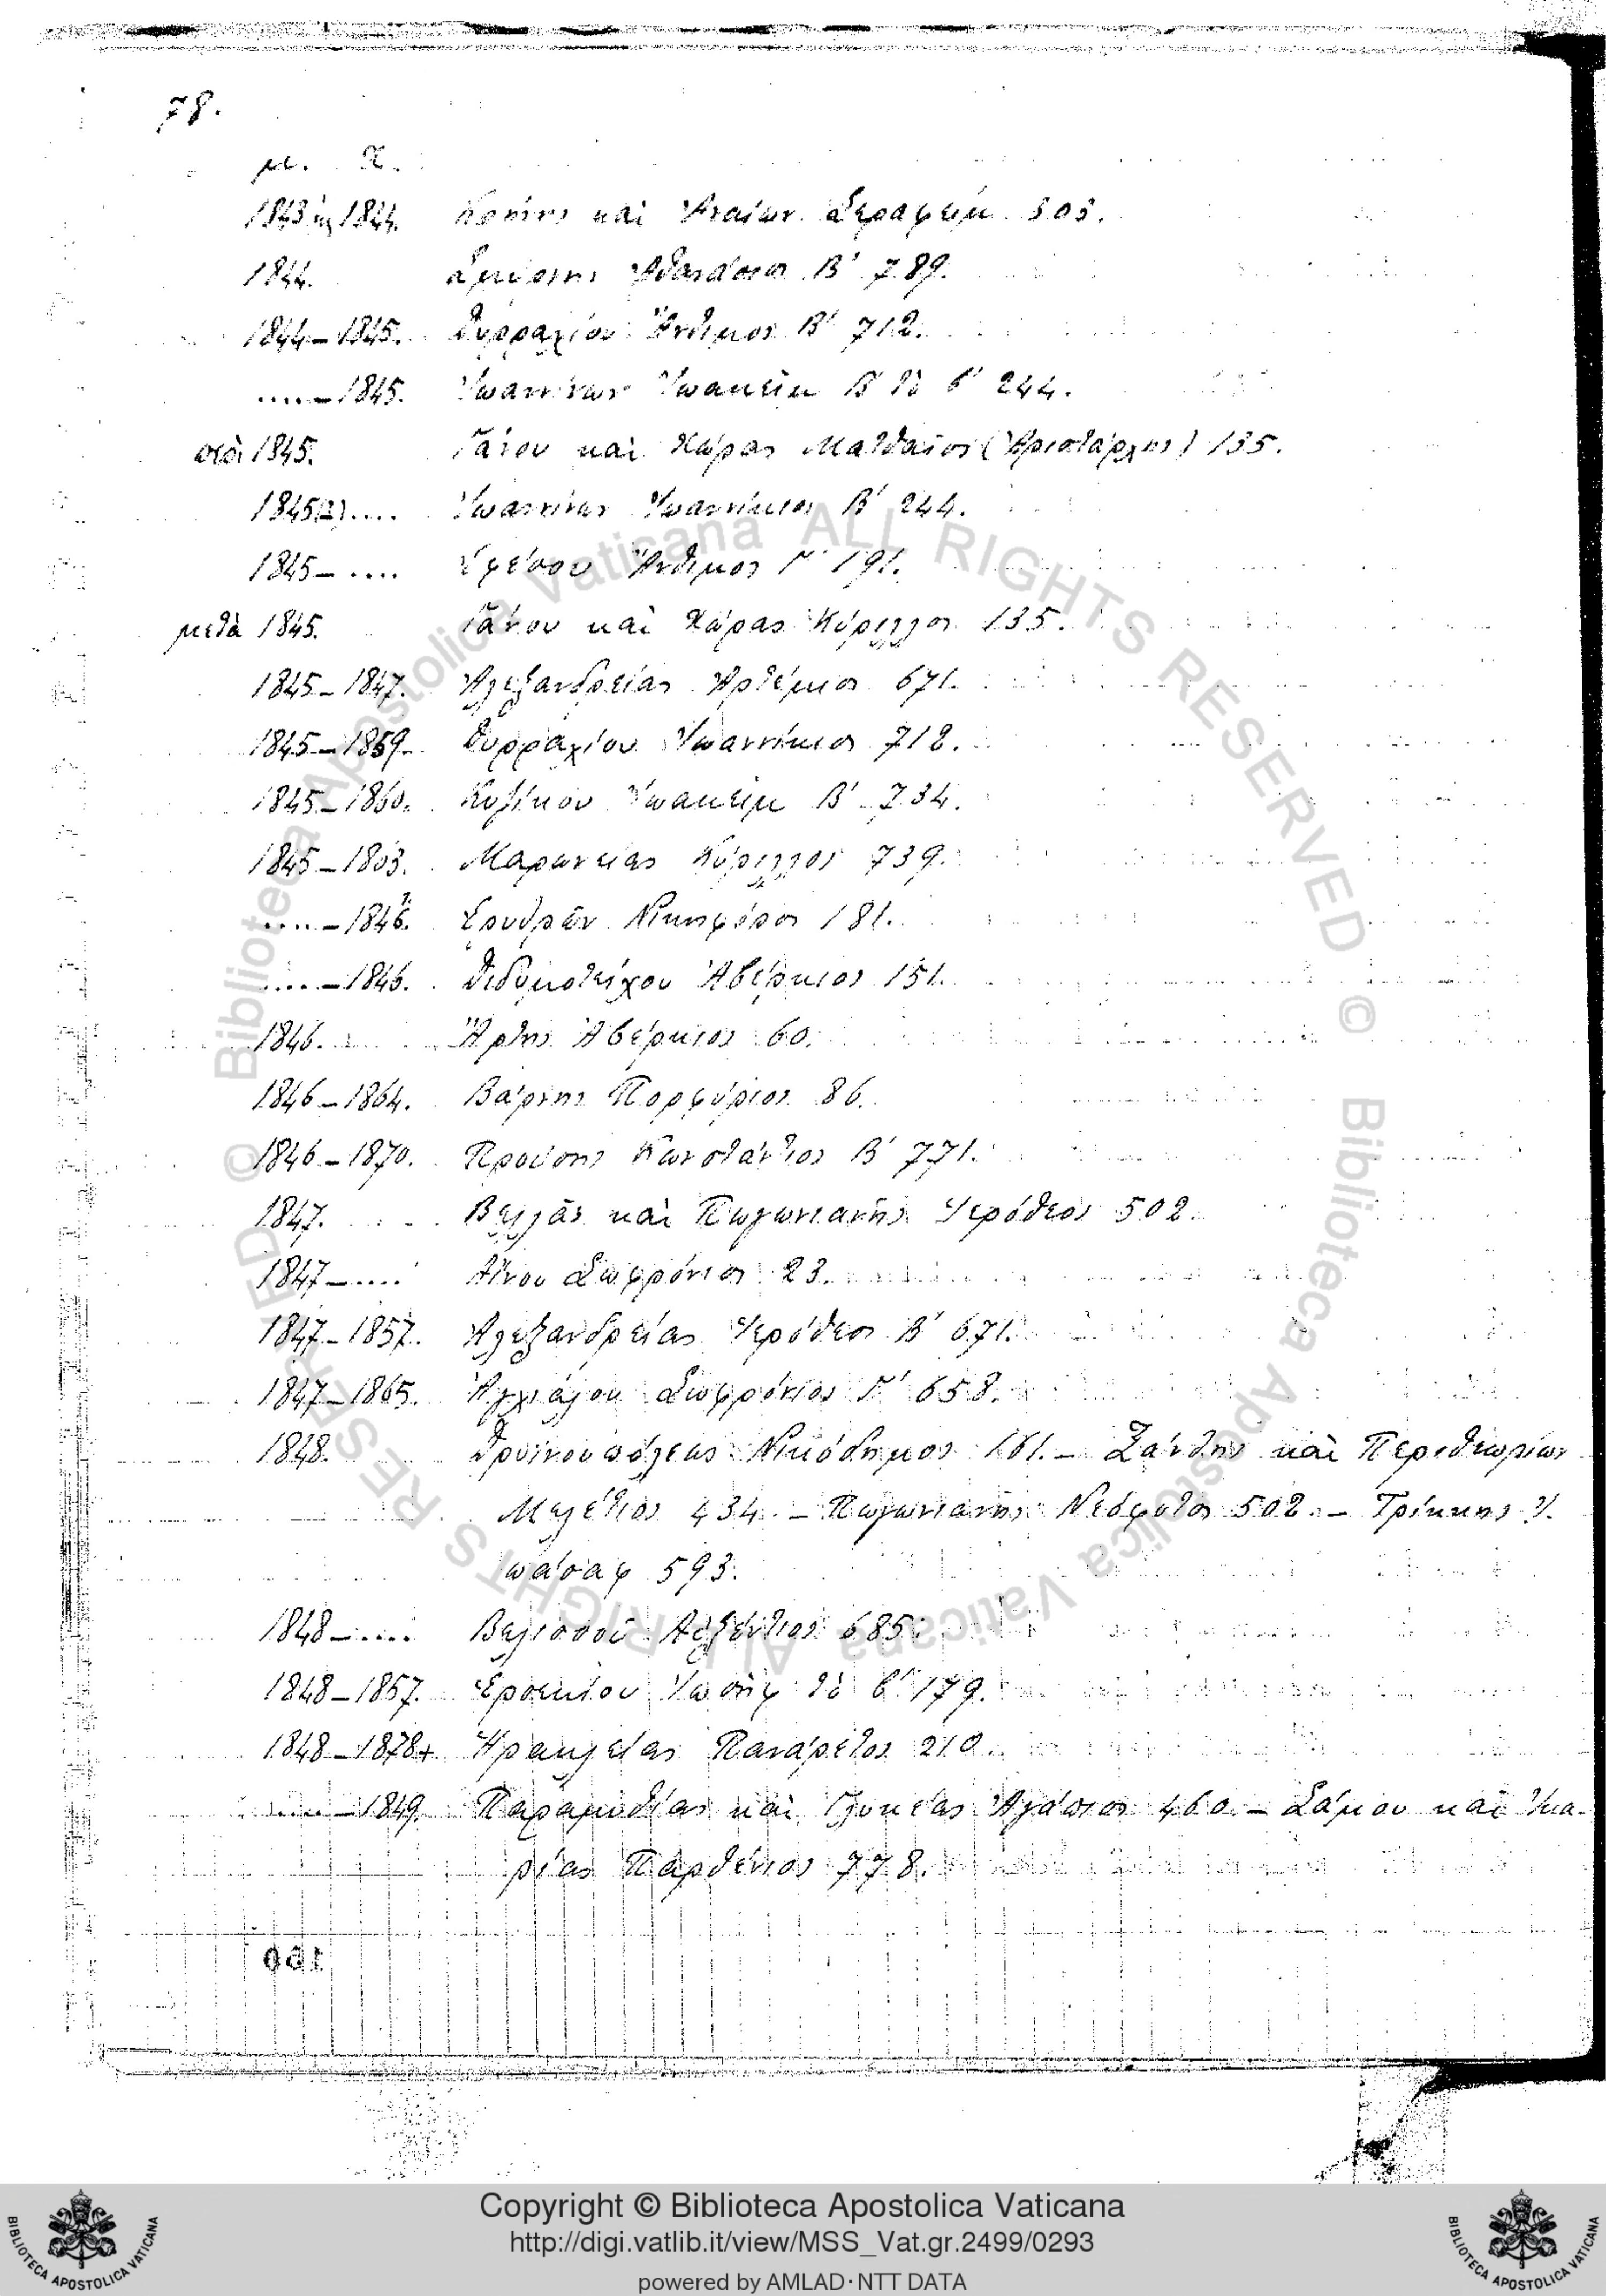 78.
μ. Χ.
1843 ἢ 1844. Κρήνης καὶ Ἀνέων Σεραφεὶμ 303.
1844. Σμύρνης Ἀθανάσιος Β΄ 789.
1844–1845. Δυρραχίου Ἄνθιμος Β΄ 712.
....–1845. Ἰωαννίνων Ἰωακεὶμ Β΄ τὸ β΄ 244.
στὰ 1845. Γάνου καὶ Χώρας Ματθαῖος (Ἀριστάρχης) 135.
1845(2).... Ἰωαννίνων Ἰωαννίκιος Β΄ 244.
1845–.... Ἐφέσου Ἄνθιμος Γ΄ 191.
μετὰ 1845. Γάνου καὶ Χώρας Κύριλλος 135.
1845–1847. Ἀλεξανδρείας Ἀρτέμιος 671.
1845–1859. Δυρραχίου Ἰωαννίκιος 712.
1845–1860. Κυζίκου Ἰωακεὶμ Β΄ 734.
1845–18 3. Μαρωνείας Κύριλλος 739.
....–1846. Ἐρυθρῶν Νικηφόρος 181.
....–1846. Διδυμοτείχου Ἀβέρκιος 151.
1846. Ἄρτης Ἀβέρκιος 60.
1846–1864. Βάρνης Πορφύριος 86.
1846–1870. Προύσης Κωνστάντιος Β΄ 771.
1847. Βελλᾶς καὶ Πωγωνιανῆς Ἱερόθεος 502.
1847–.... Αἴνου Σωφρόνιος 23.
1847–1857. Ἀλεξανδρείας Ἱερόθεος Β΄ 671.
1847–1865. Ἀγχιάλου Σωφρόνιος Γ΄ 658.
1848. Δρυϊνουπόλεως Νικόδημος 161.– Ξάνθης καὶ Περιθεωρίου
Μελέτιος 434.– Πωγωνιανῆς Νεόφυτος 502.– Τρίκκης Ἰ-
ωάσαφ 593.
1848–.... Βελισσοῦ Αὐξέντιος 685.
1848–1857. Ἐρσεκίου Ἰωσὴφ τὸ β΄ 179.
1848–1878+ Ἡρακλείας Πανάρετος 210.
....–1849. Παραμυθίας καὶ Γλυκέας Ἀγάπιος 460.– Σάμου καὶ Ἰκα-
ρίας Παρθένιος 778.
Copyright © Biblioteca Apostolica Vaticana
http://digi.vatlib.it/view/MSS_Vat.gr.2499/0293
powered by AMLAD·NTT DATA
BIBLIOTECA APOSTOLICA VATICANA
BIBLIOTECA APOSTOLICA VATICANA
© Biblioteca Apostolica Vaticana ALL RIGHTS RESERVED
© Biblioteca Apostolica Vaticana ALL RIGHTS RESERVED